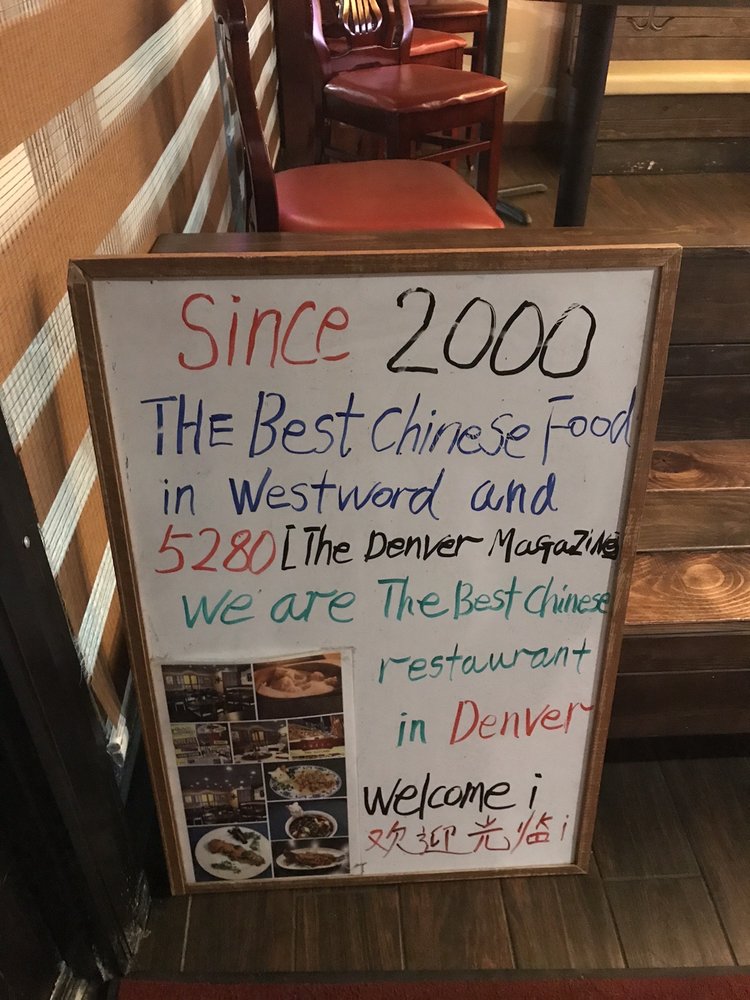 Since 2000
THE Best Chinese Food
in Westword and
5280 [The Denver MagaZiNe]
we are The Best Chinese
restaurant
in Denver
Welcome i
欢迎光临i